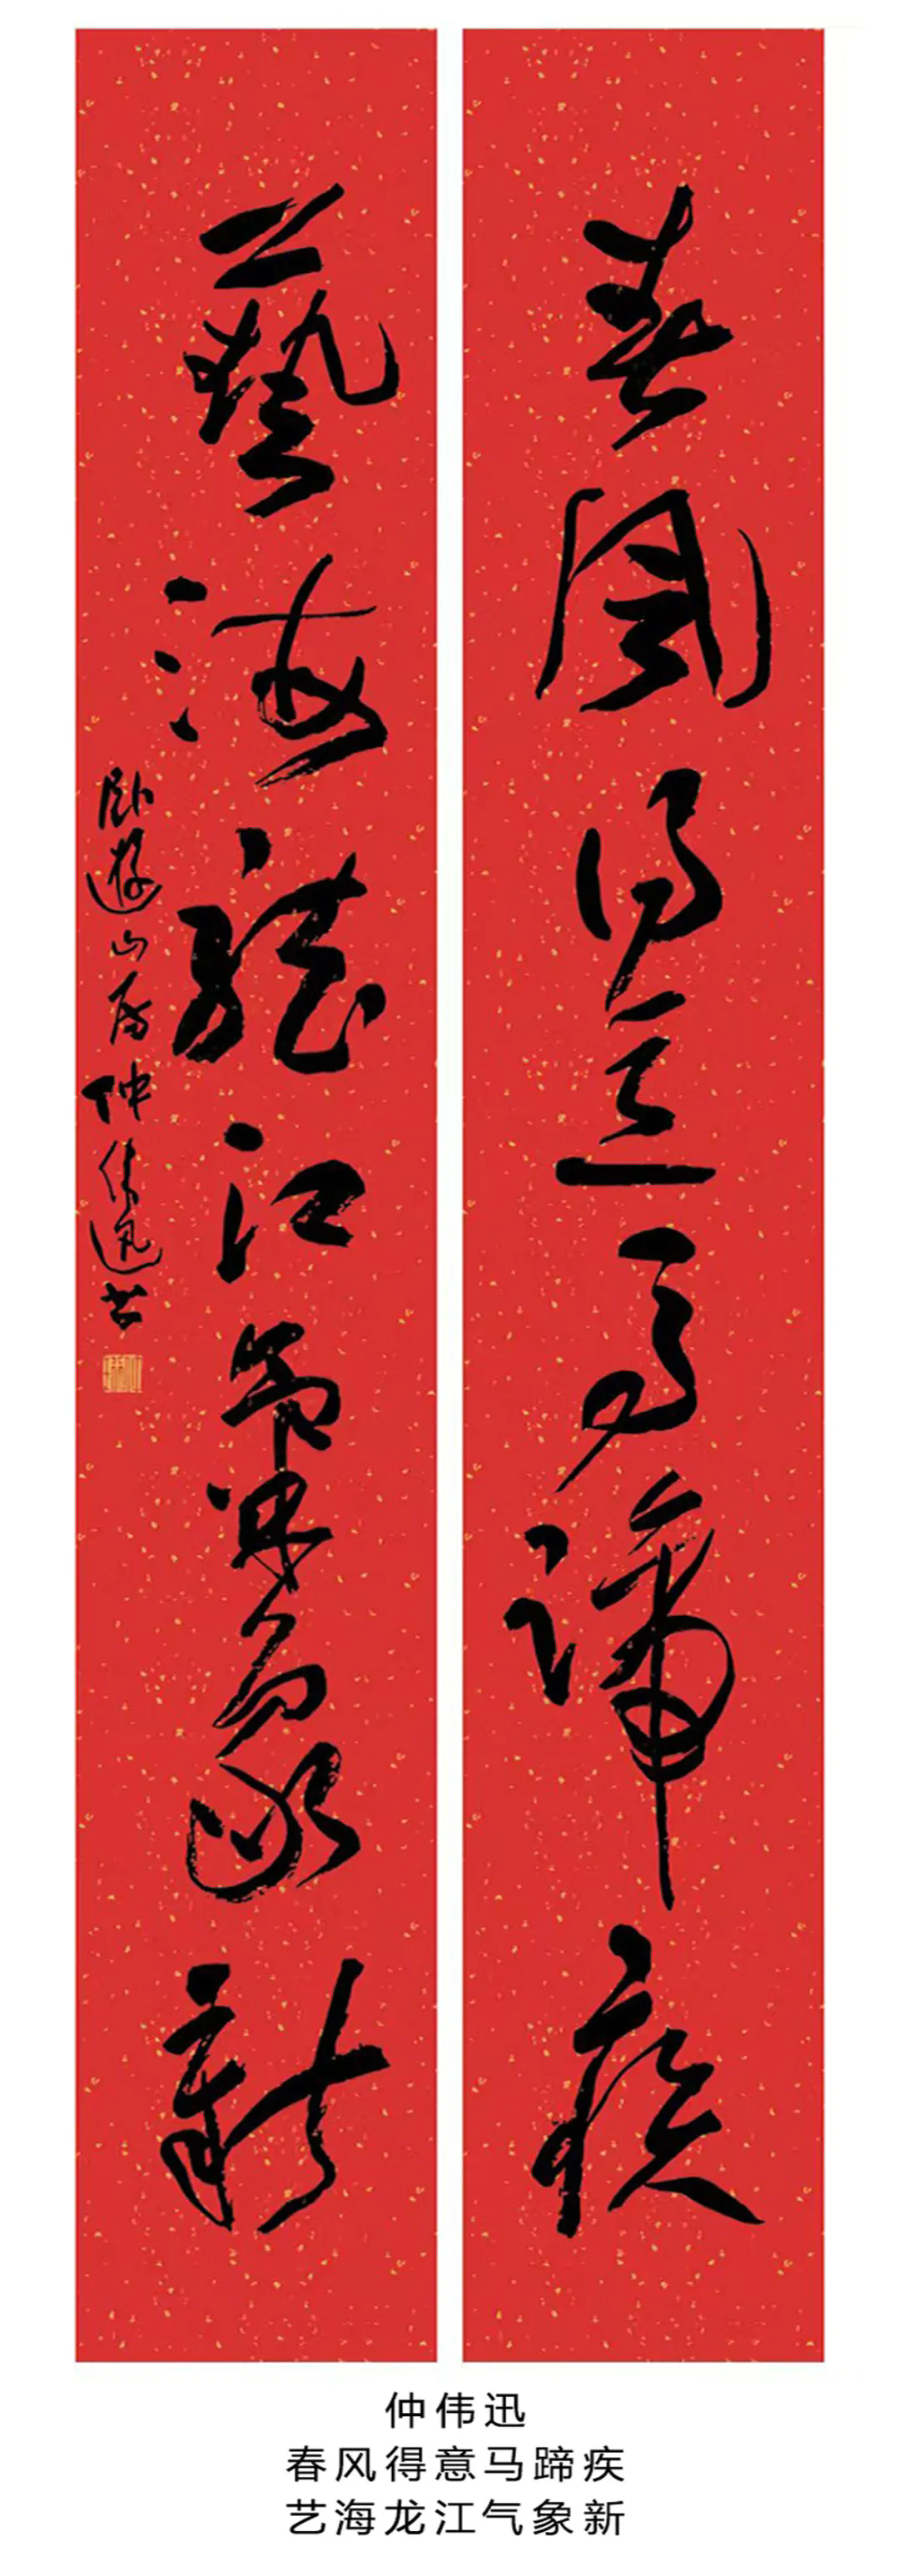 春風得意馬蹄疾
藝海龍江氣象新
卧遊山房仲偉迅书
仲伟迅
春风得意马蹄疾
艺海龙江气象新